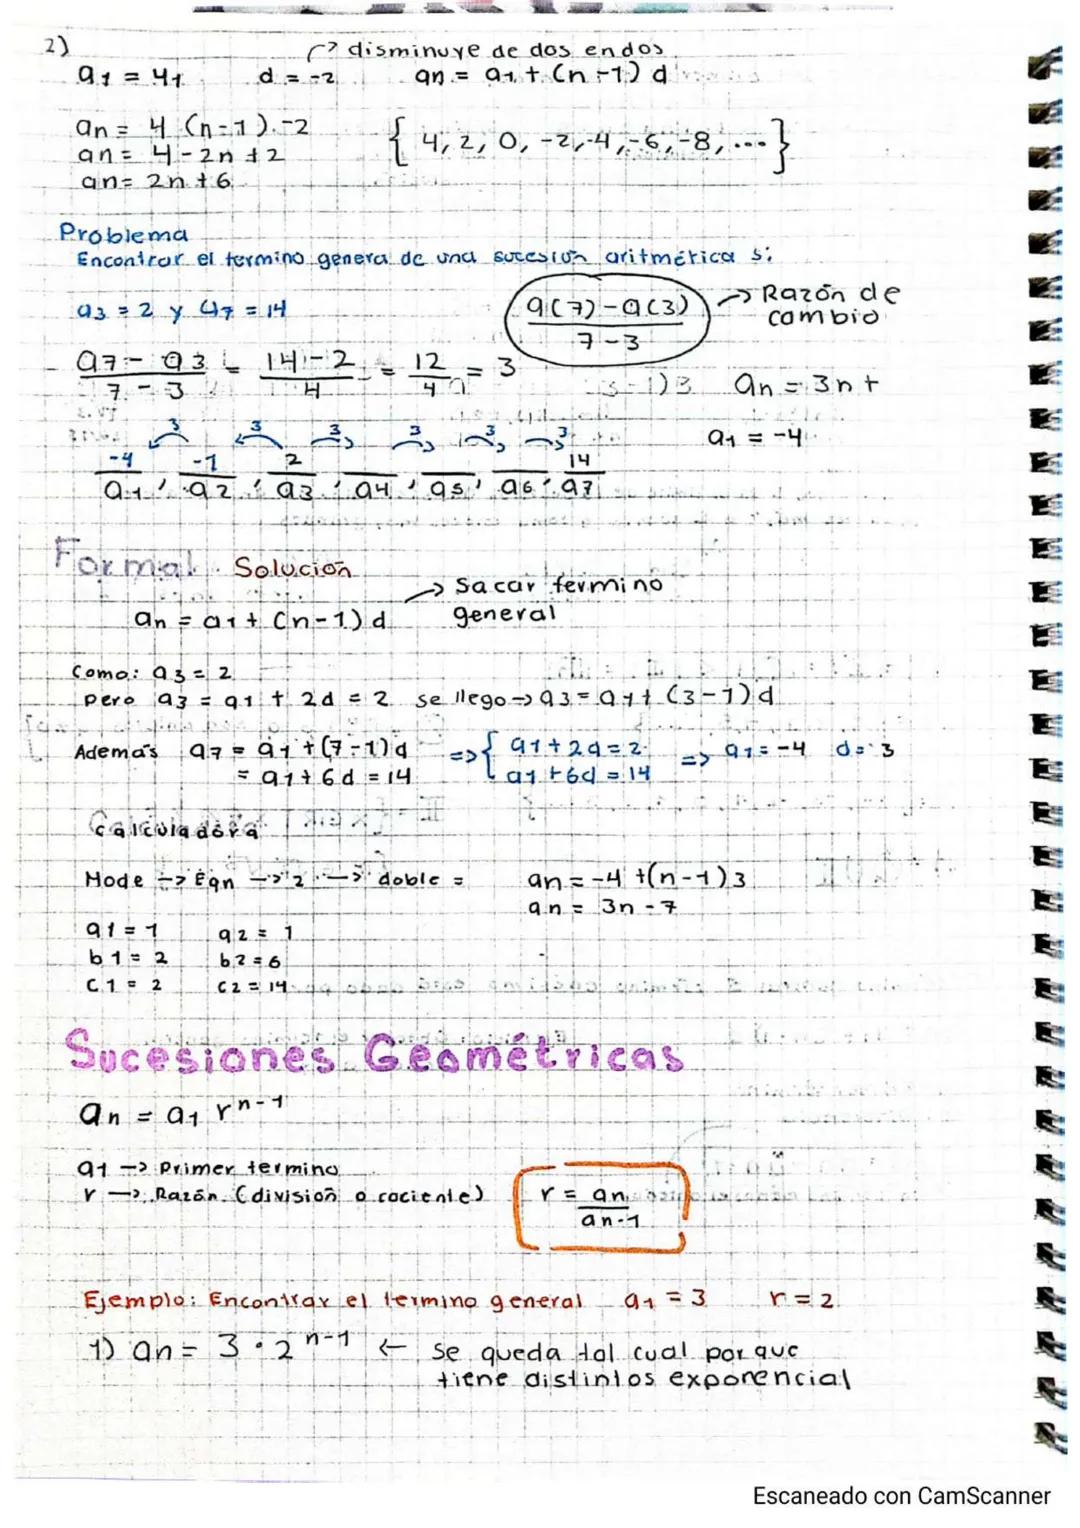 2)
↱ disminuye de dos en dos
a1 = 4 d = -2 an = a1 + (n-1) d
an = 4 (n-1).-2
an = 4-2n+2
an = 2n+6
{ 4, 2, 0, -2, -4, -6, -8, ... }
Problema
Encontrar el termino genera de una sucesión aritmética si
a3 = 2 y a7 = 14
a(7)-a(3) / 7-3 → Razón de cambio
a7 - a3 / 7 - 3 = 14-2 / 4 = 12 / 4 = 3
an = 3n +
a1 = -4
3 3 3 3 3 3
-4 -1 2 14
a1, a2, a3, a4, a5, a6, a7
Formal Solución
→ Sacar termino general
an = a1 + (n-1) d
Como: a3 = 2
pero a3 = a1 + 2d = 2 se llego → a3 = a1 + (3-1) d
Además a7 = a1 + (7-1) d
= a1 + 6d = 14
=> { a1 + 2d = 2
a1 + 6d = 14
=> a1 = -4 d = 3
Calculadora
Mode → Eqn → 2 → doble =
an = -4 + (n-1) 3
an = 3n - 7
a1 = 1 a2 = 1
b1 = 2 b2 = 6
c1 = 2 c2 = 14
Sucesiones Geométricas
an = a1 r^n-1
a1 → Primer termino
r → Razón (división o cociente)
r = an / an-1
Ejemplo: Encontrar el termino general a1 = 3 r = 2
1) an = 3 · 2^n-1 ← Se queda tal cual porque
tiene distintos exponencial
Escaneado con CamScanner